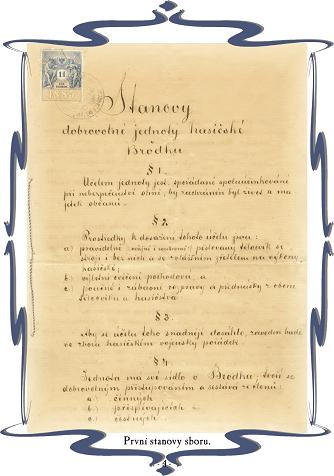 Stanovy
dobrovolné jednoty hasičské
v Brodku
§ 1.
Účelem jednoty jest spořádané spoluúčinkování
při nebezpečenství ohně, by zachráněn byl život a ma-
jetek občanů.
§ 2.
Prostředky k dosažení tohoto účelu jsou:
a.) pravidelně pěstovaný tělocvik se
stroji i bez nich a se zvláštním zřetelem na výkony
hasičské;
b.) výletní cvičení pochodová, a
c.) poučné i zábavné rozpravy a přednášky z oboru
tělocviku a hasičstva.
§ 3.
Aby se účelu toho snadněji dosáhlo, zaveden bude
ve sboru hasičském vojenský pořádek.
§ 4.
Jednota má své sídlo v Brodku, tvoří se
dobrovolným přistupováním a sestává z členů:
a.) činných
b.) přispívajících a
c.) čestných.
První stanovy sboru.
4